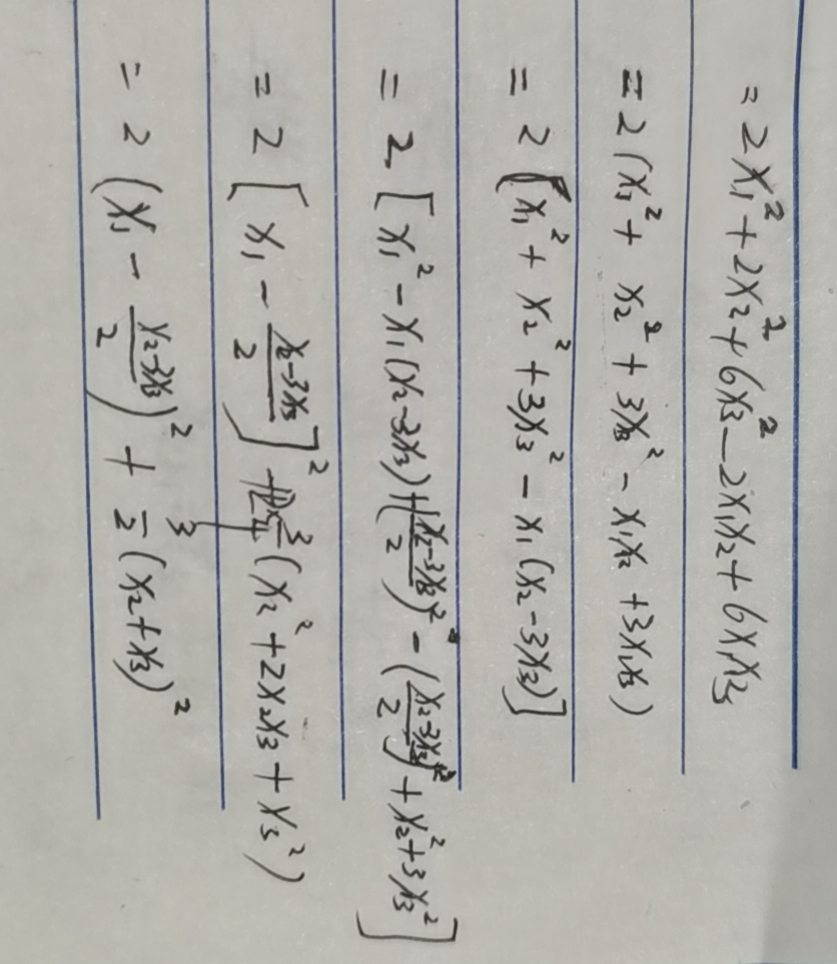 = 2x₁² + 2x₂² + 6x₃² - 2x₁x₂ + 6x₁x₃
= 2(x₁² + x₂² + 3x₃² - x₁x₂ + 3x₁x₃)
= 2[x₁² + x₂² + 3x₃² - x₁(x₂-3x₃)]
= 2[x₁² - x₁(x₂-3x₃) + ((x₂-3x₃)/2)² - ((x₂-3x₃)/2)² + x₂² + 3x₃²]
= 2[x₁ - (x₂-3x₃)/2]² + (x₂² + 2x₂x₃ + x₃²)
= 2(x₁ - (x₂-3x₃)/2)² + 3/2(x₂+x₃)²